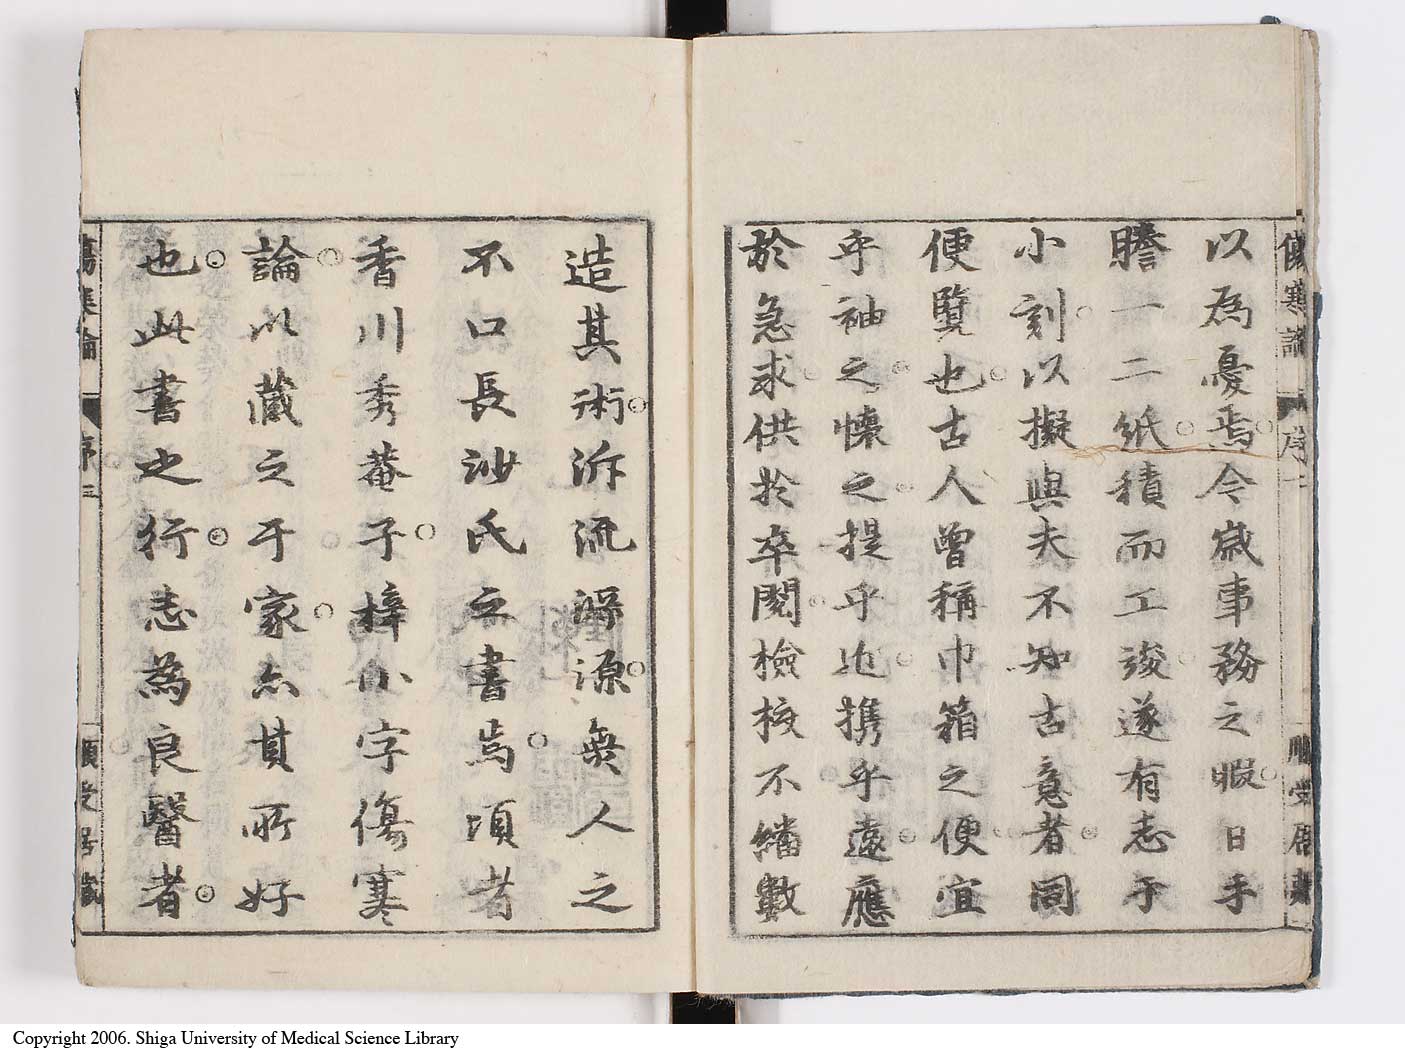 傷寒論 序二 順受居藏
以為憂焉今歲事務之暇日手
謄一二紙積而工竣遂有志于
小刻以擬與夫不知古意者同
便覽也古人曾稱巾箱之便宜
乎袖之懷之提乎近攜乎遠應
於急求供於卒閱檢核不繙數
造其術泝流溯源無人之
不口長沙氏之書焉頃者
香川秀菴子梓小字傷寒
論以藏之于家亦其所好
也此書之行志為良醫者
傷寒論 序三 順受居藏
Copyright 2006. Shiga University of Medical Science Library